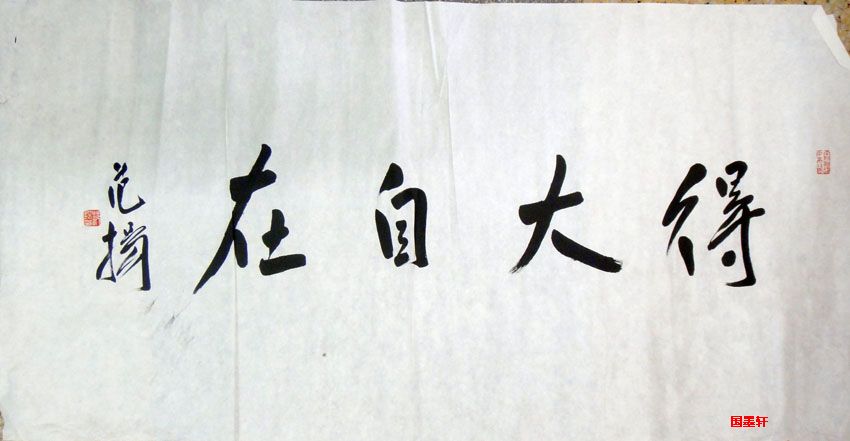 得大自在
范扬
国墨轩